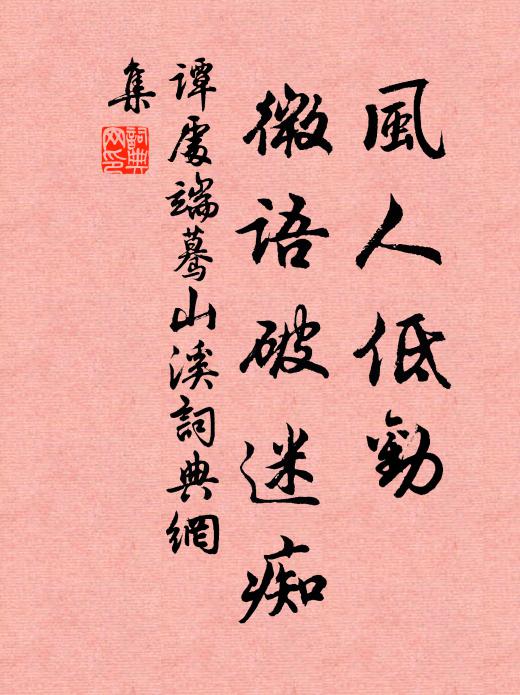 風人低勸
微語破迷痴
譚處端驀山溪詞典網
集
詞典
网印